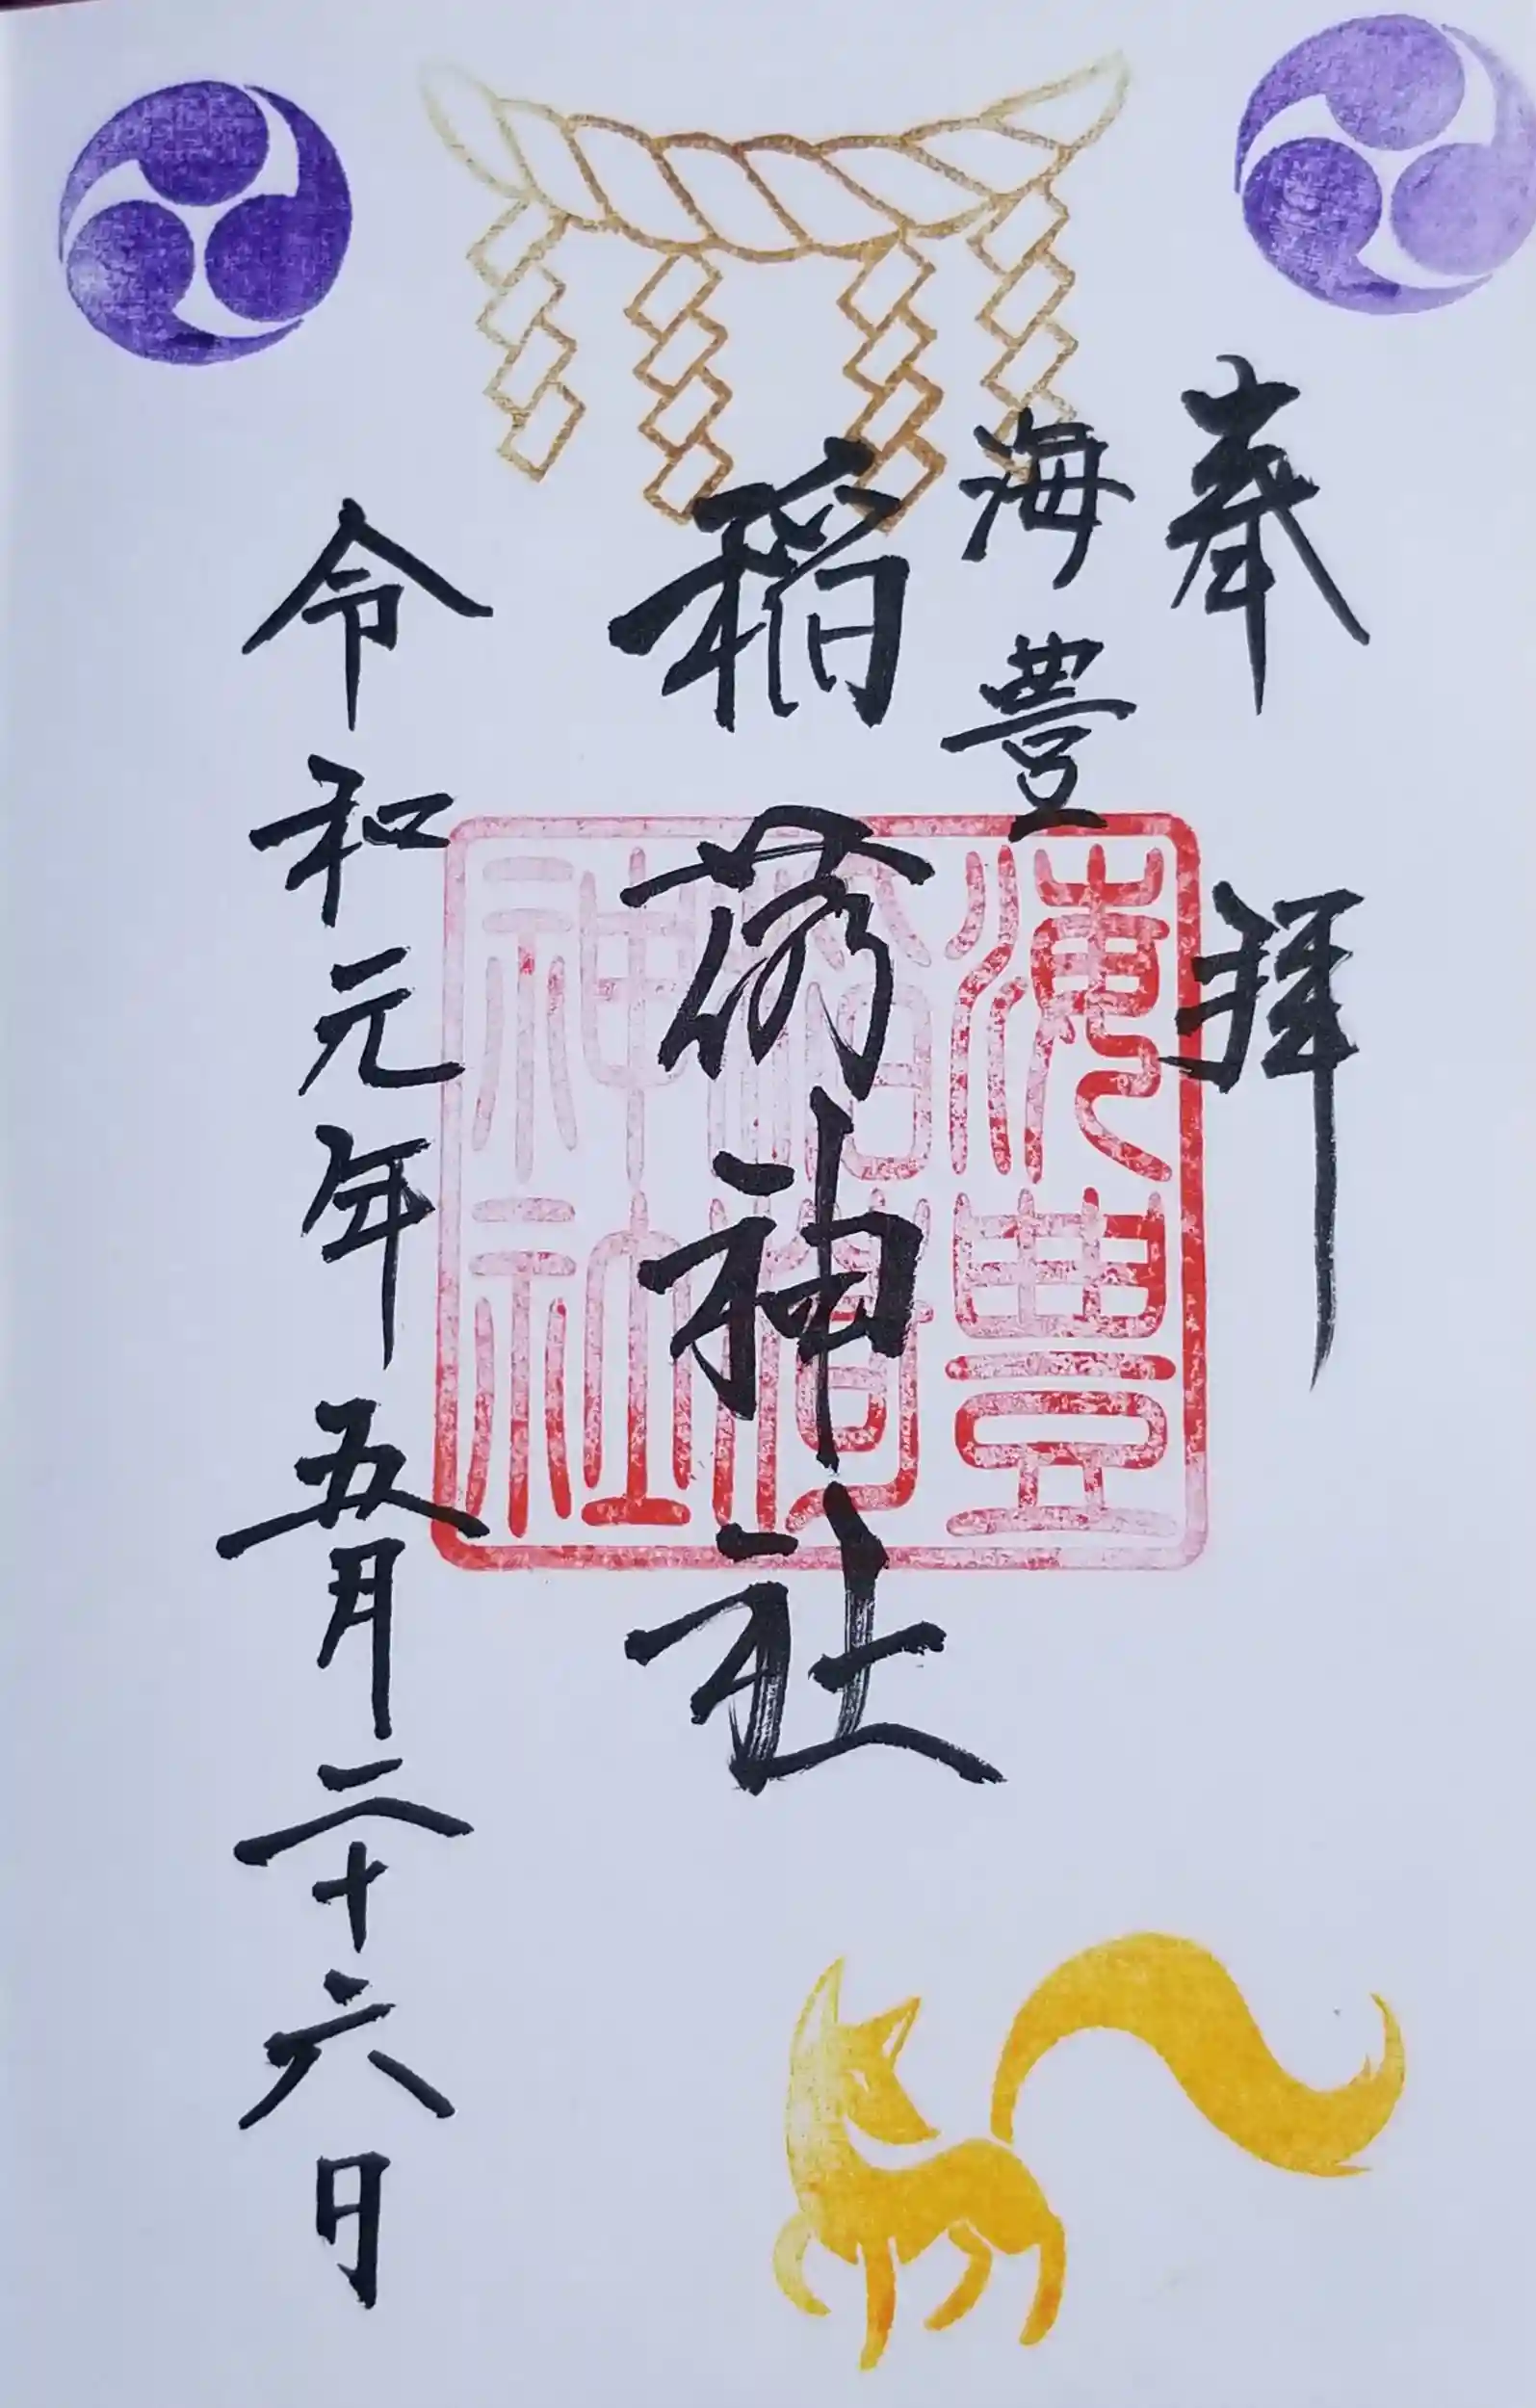 奉拝
海豊
稲荷神社
令和元年五月二十六日
海豊
稲荷
神社